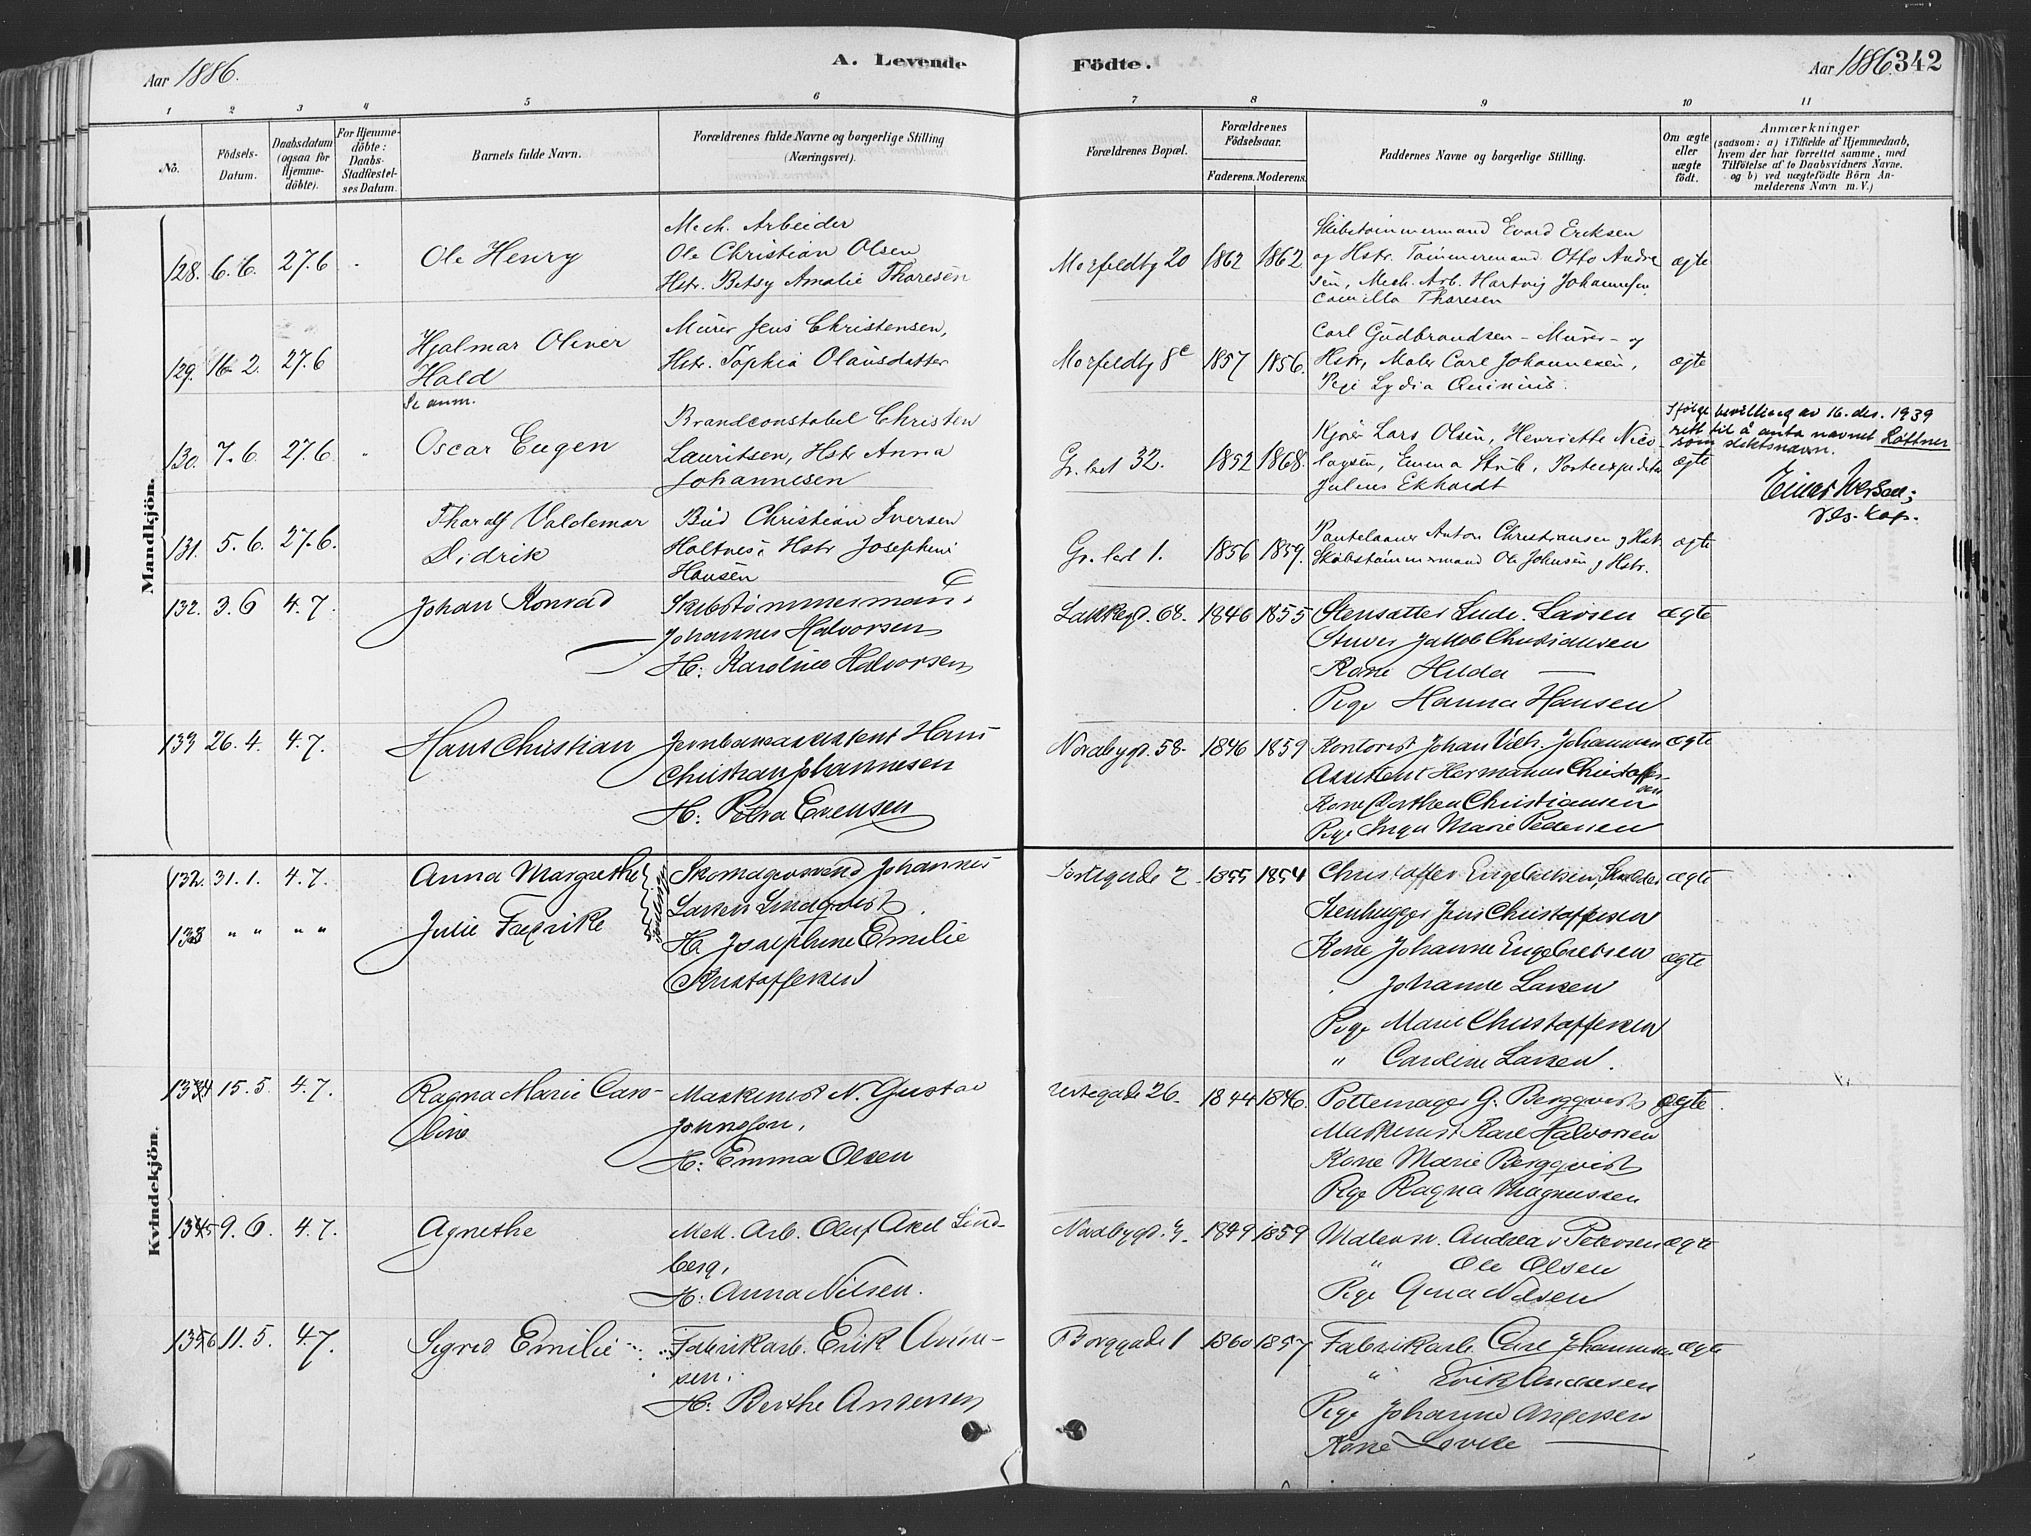 Aar 1886.
A. Levende
Födte.
Aar 1886. 342
1 2 3 4 5 6 7 8 9 10 11
No.
Födsels-Datum.
Daabsdatum (ogsaa for Hjemmedöbte).
For Hjemmedöbte: Daabs-Stadfæstelses Datum.
Barnets fulde Navn.
Forældrenes fulde Navne og borgerlige Stilling (Næringsvei).
Forældrenes Bopæl.
Forældrenes Födselsaar.
Faderens. Moderens.
Faddernes Navne og borgerlige Stilling.
Om ægte eller uægte födt.
Anmærkninger
(saasom: a) i Tilfælde af Hjemmedaab, hvem der har forrettet samme, med Tilföielse af to Daabsvidners Navne. og b) ved uægtefödte Börn Anmelderens Navn m. V.)
Mandkjön.
128. 6.6. 27.6
Ole Henry
Mech. Arbeider
Ole Christian Olsen
Hstr. Betsy Amalie Thoresen
Morfeldtg 20 1862 1862
Skibstömmermand Evard Eriksen
og Hstr. Tömmermand Otto Andre
sen, Mech. Arb. Hartvig Johannesen
Camilla Thoresen
ægte
129. 16-2. 27.6
Hjalmar Oliver
Hald
Murer Jens Christensen,
Hstr. Sophia Olausdatter
Morfeldtg 8c 1857 1856.
Carl Gudbrandsen - Murer - og
Hstr, Maler Carl Johannesen,
Pige Lydia
ægte
Se anm.
130. 7.6. 27.6.
Oscar Eugen
Brandconstabel Christen
Lauritsen, Hstr Anna
Johannesen
Gr. led 32. 1852 1868.
Kjører Lars Olsen, Henriette Nico
laysen, Emma Strøb, Portexpeditør
Julius Ekhardt
ægte
Ifølge bevilling av 16. des. 1939
rett til å anta navnet Løttner
som slektsnavn.
Einar Iversen;
res. kap.
131. 5.6. 27.6.
Tharalf Valdemar
Didrik
Bud Christian Iversen
Holtnes, Hstr Josephine
Hansen
Gr. led 1. 1856 1859.
Pantelaaner Anton Christiansen og Hstr
Skibstömmermand Ole Johnsen og Hstr.
ægte
132. 3.6 4.7.
Johan Konrad
Skibstømmermand
Johannes Halvorsen
H: Karoline Halvorsen
Lakkegd. 68. 1846 1855
Stensætter Lude. Larsen
Stuver Jakob Christiansen
Kone Hilda —
Pige Hanna Hansen
ægte
133 26.4. 4.7.
Hans Christian
Jernbaneassistent Hans
Christian Johannesen
H: Petra Evensen
Nordbygd. 58. 1846 1859
Kontorist Johan Vilh. Johannesen
Assistent Hermanus Christoffersen
Kone Dorthea Christiansen
Pige Inga Marie Pedersen
ægte
Kvindekjön.
132. 31.1. 4.7.
Anna Margrethe
Skomagersvend Johannes
Larsen Lindqvist
Tvillinger
133 " " " "
Julie Fredrike
H: Josephine Emilie
Kristoffersen
Tostegade 2 1855 1854
Christoffer Engebretsen, Skrædder
Stenhugger Jens Christoffersen
Kone Johanne Engebretsen
" Johanne Larsen
Pige Marie Christoffersen
" Caroline Larsen.
ægte
ægte
134 15.5. 4.7.
Ragna Marie Caro-
line
Maskinist N. Gustav
Johnsson,
H: Emma Olsen
Vestegade 26. 1844 1846.
Pottemager G. Bergqvist
Maskinist Karl Halvorsen
Kone Marie Bergqvist
Pige Ragna Magnussen
ægte
135 9.6. 4.7.
Agnethe
Mek. Arb. Oluf Axel Lind-
berg,
H: Anna Nilsen.
Nordbygd. 1849 1859
Malersv. Andrea v Petersen
" Ole Olsen
Pige Gina Nilsen
ægte
136 11.5. 4.7.
Sigrid Emilie
Fabrikarb. Erik Andre-
sen.
H: Berthe Andersen
Borggade 1 1860 1857
Fabrikarb. Carl Johannesen
" Erik Andresen
Pige Johanne Andersen
Kone Lovise —
ægte